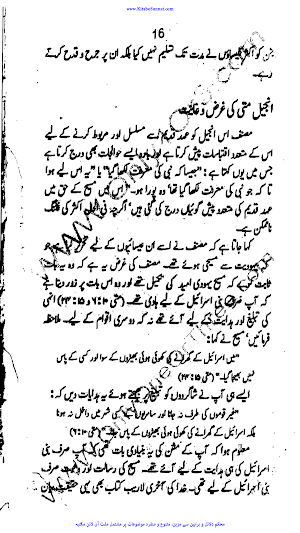 www.KitaboSunnat.com
16
جن کو اکثر کلیساؤں نے مدت تک تسلیم نہیں کیا بلکہ ان پر جرح و قدح کرتے
رہے۔
انجیل متی کی غرض و غایت
مصنف اس انجیل کو عہد قدیم سے مسلسل اور مربوط کرنے کے لیے
اس کے متعدد اقتباسات پیش کرتا ہے اور بار بار ایسے حوالجات بھی درج کرتا ہے
جن میں یوں کہتا ہے: "جیسا کہ نبی کی معرفت لکھا گیا" یا "یہ اس لیے ہوا
تا کہ جو نبی کی معرفت کہا گیا تھا وہ پورا ہو۔" اس میں مسیح کے حق میں
عہد قدیم کی متعدد پیش گوئیاں درج کی گئی ہیں' اگرچہ اکثر کی
ناممکن ہے۔
کہا جاتا ہے کہ مصنف نے اسے ان عیسائیوں کے لیے جو
یہودیت سے مسیحی ہوئے تھے۔ مصنف کی غرض یہ ہے کہ وہ یہ بات
ثابت کرے کہ مسیح یہودی امید کی تکمیل تھے اور وہ اس بات پر زور دیتا ہے
کہ آپ صرف بنی اسرائیل کے لیے ہادی تھے۔ (متی ۱۰: ۶ و ۱۵: ۲۴) انہی
کی تبلیغ اور ہدایت کے لیے آئے تھے نہ کہ دوسری اقوام کے لیے۔ ملاحظہ
فرمائیں' مسیح نے کہا:
"میں اسرائیل کے گھرانے کی کھوئی ہوئی بھیڑوں کے سوا اور کسی کے پاس
نہیں بھیجا گیا۔" (متی ۱۵: ۲۴)
ایسے ہی آپ نے شاگردوں کو تبلیغ پر بھیجتے ہوئے یہ ہدایات دیں کہ:
"غیر قوموں کی طرف نہ جانا اور سامریوں کے کسی شہر میں داخل نہ ہونا
بلکہ اسرائیل کے گھرانے کی کھوئی ہوئی بھیڑوں کے پاس جانا۔" (متی ۱۰: ۶)
معلوم ہوا کہ آپ کے مشن کی یہ بنیادی بات تھی کہ آپ صرف بنی
اسرائیل کی ہی ہدایت کے لیے آئے تھے۔ مسیح کی رسالت اور ہدایت صرف
بنی اسرائیل کے لیے تھی۔ خدا کی آخری لاریب کتاب بھی یہی حقیقت بیان
محکم دلائل و براہین سے مزین، متنوع و منفرد موضوعات پر مشتمل مفت آن لائن مکتبہ